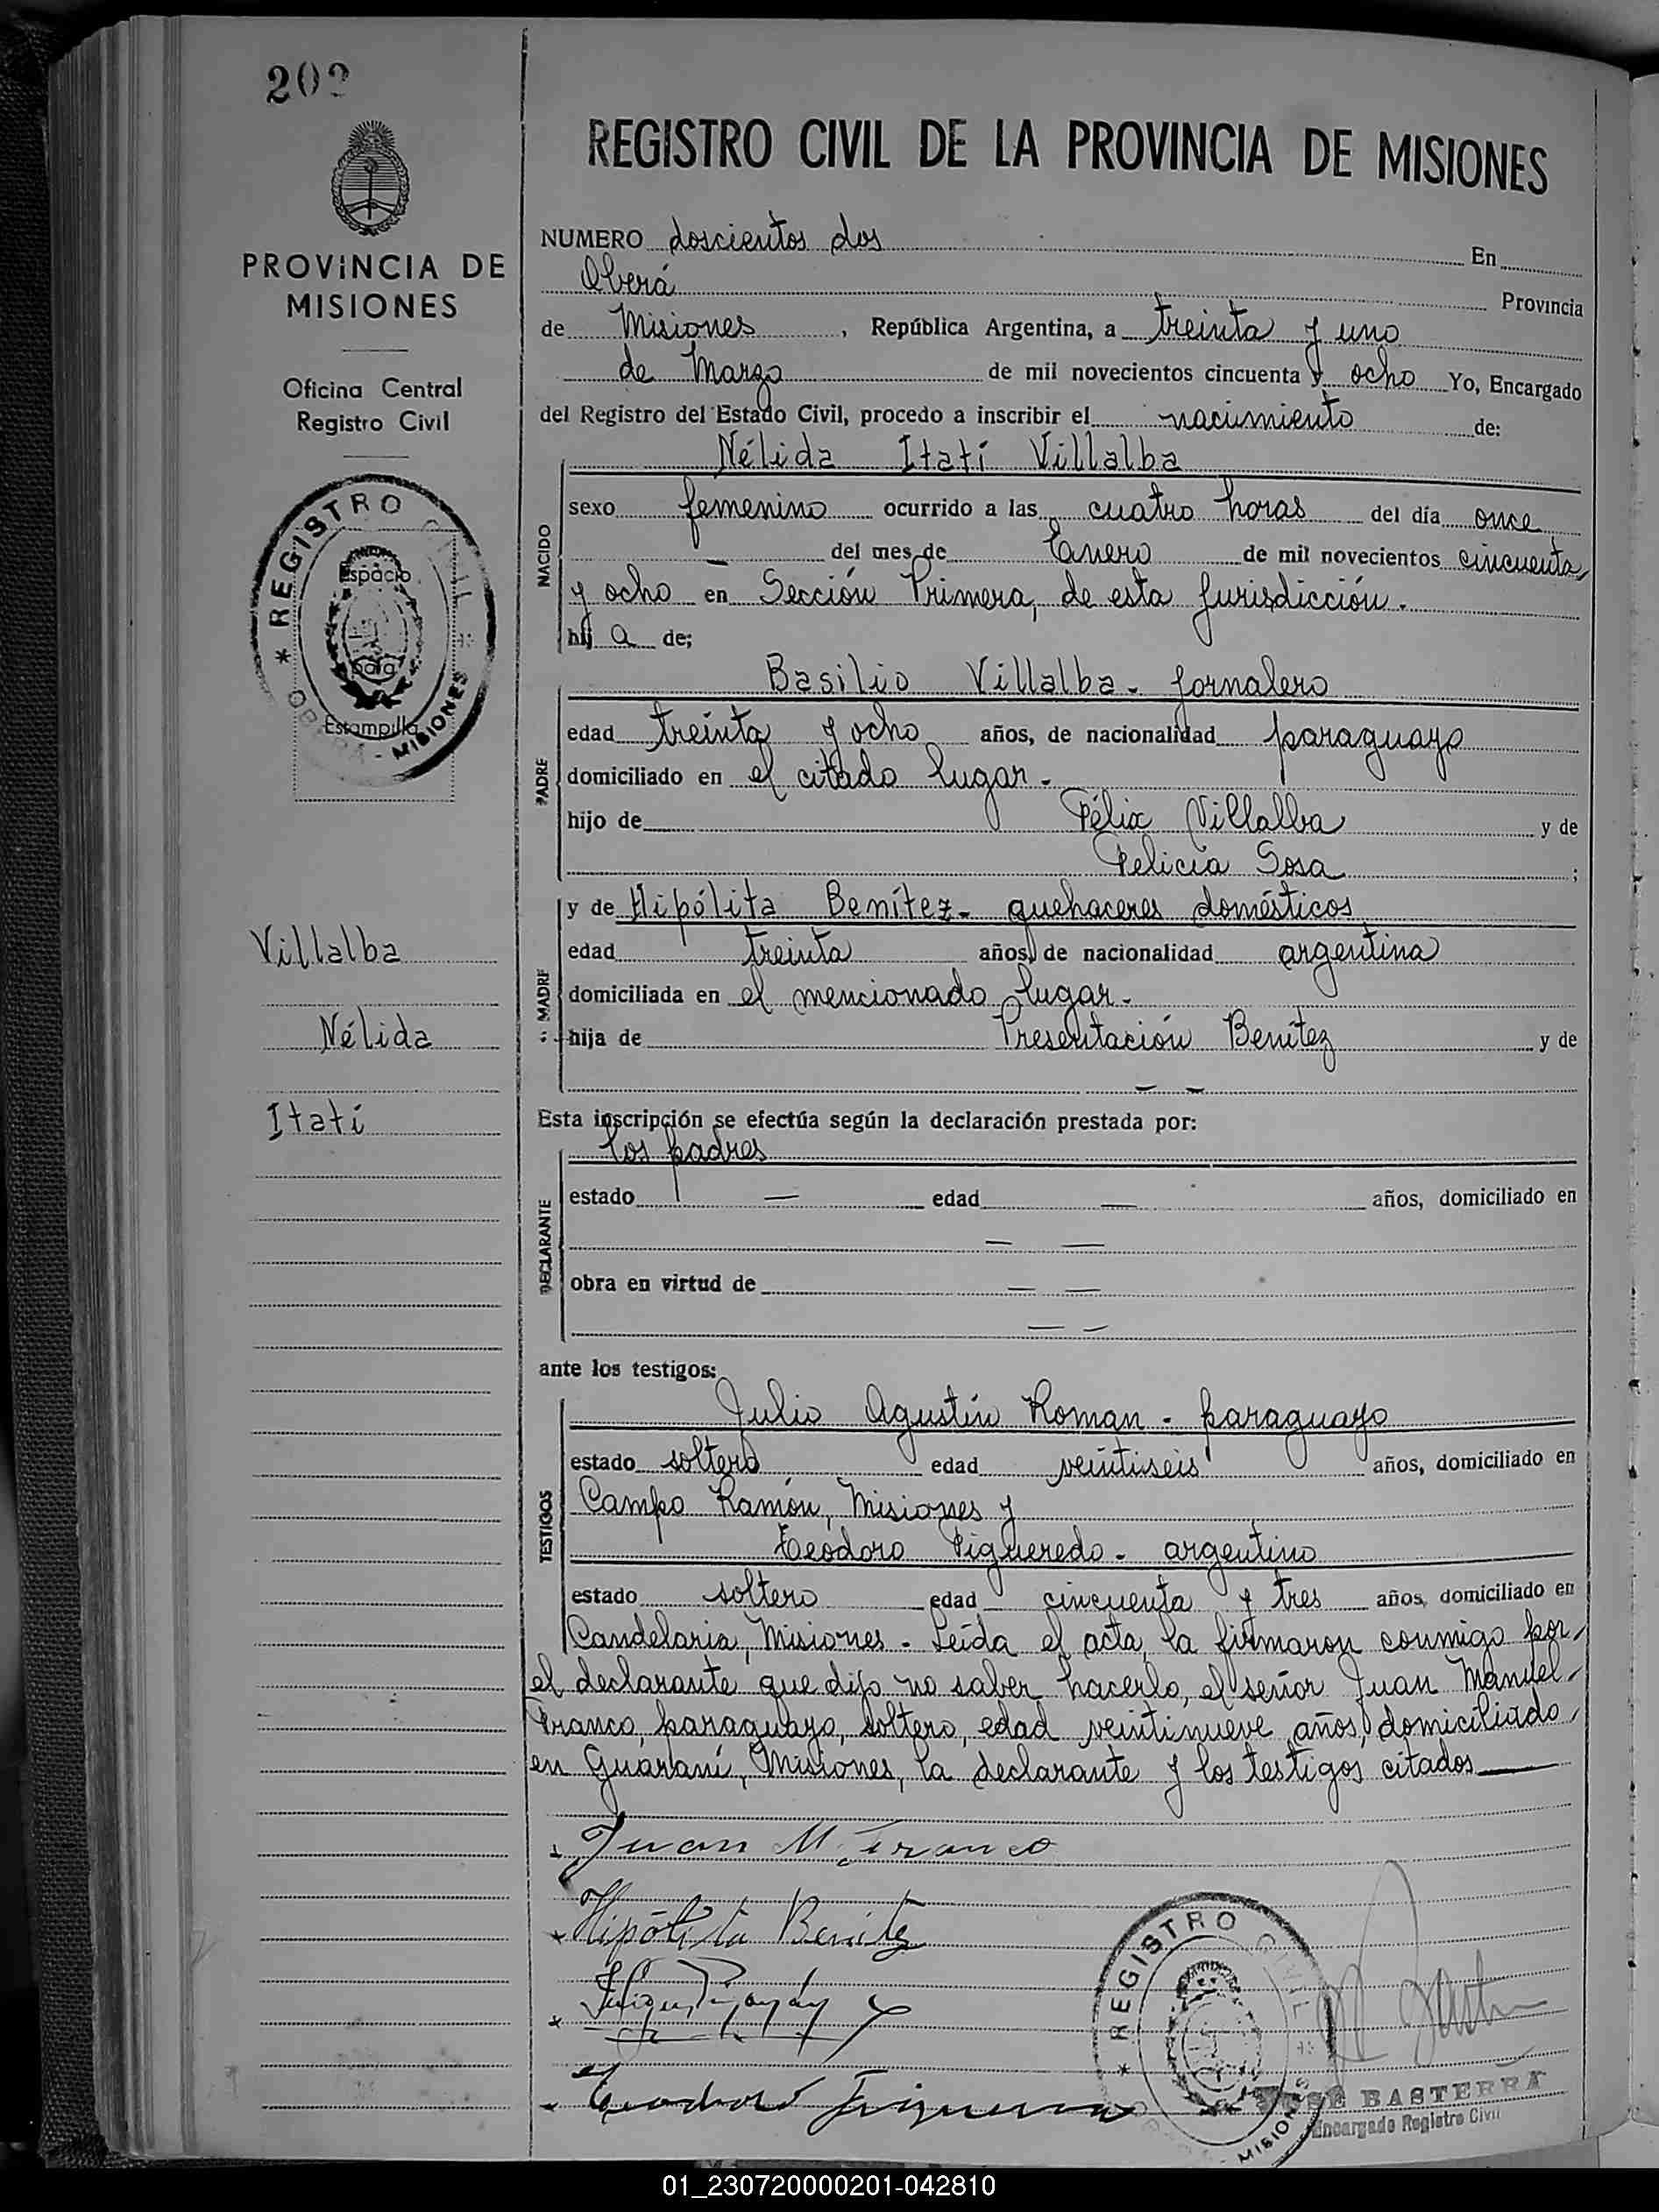 202
REGISTRO CIVIL DE LA PROVINCIA DE MISIONES
PROVINCIA DE
MISIONES
Oficina Central
Registro Civil
REGISTRO CIVIL
OBERA - MISIONES
Espacio
para
Estampilla
Villalba
Nélida
Itatí
NUMERO doscientos dos En
Oberá Provincia
de Misiones, República Argentina, a treinta y uno
de Marzo de mil novecientos cincuenta y ocho Yo, Encargado
del Registro del Estado Civil, procedo a inscribir el nacimiento de:
Nélida Itatí Villalba
NACIDO
sexo femenino ocurrido a las cuatro horas del día once
— del mes de Enero de mil novecientos cincuenta
y ocho en Sección Primera, de esta jurisdicción.
hij a de;
Basilio Villalba - jornalero
PADRE
edad treinta y ocho años, de nacionalidad paraguayo
domiciliado en el citado lugar -
hijo de Félix Villalba y de
Felicia Sosa ;
y de Hipólita Benítez - quehaceres domésticos
MADRE
edad treinta años, de nacionalidad argentina
domiciliada en el mencionado lugar -
hija de Presentación Benítez y de
— —
Esta inscripción se efectúa según la declaración prestada por:
los padres
DECLARANTE
estado — edad — años, domiciliado en
— —
obra en virtud de — —
— —
ante los testigos:
Julio Agustín Roman - paraguayo
TESTIGOS
estado soltero edad veintiseis años, domiciliado en
Campo Ramón, Misiones y
Teodoro Figueredo - argentino
estado soltero edad cincuenta y tres años, domiciliado en
Candelaria, Misiones - Leída el acta, la firmaron conmigo por
el declarante que dijo no saber hacerlo, el señor Juan Manuel
Franco, paraguayo, soltero, edad veintinueve años, domiciliado
en Guaraní, Misiones, la declarante y los testigos citados —
Juan M. Franco
Hipólita Benitez
Teodoro
REGISTRO CIVIL
MISIONES
JOSE BASTERRA
Encargado Registro Civil
01_230720000201-042810